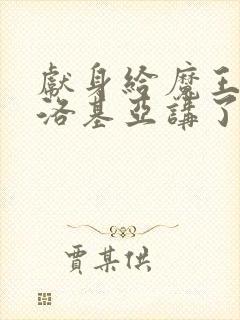 獻身給魔王
洛基亞講了
賈某供